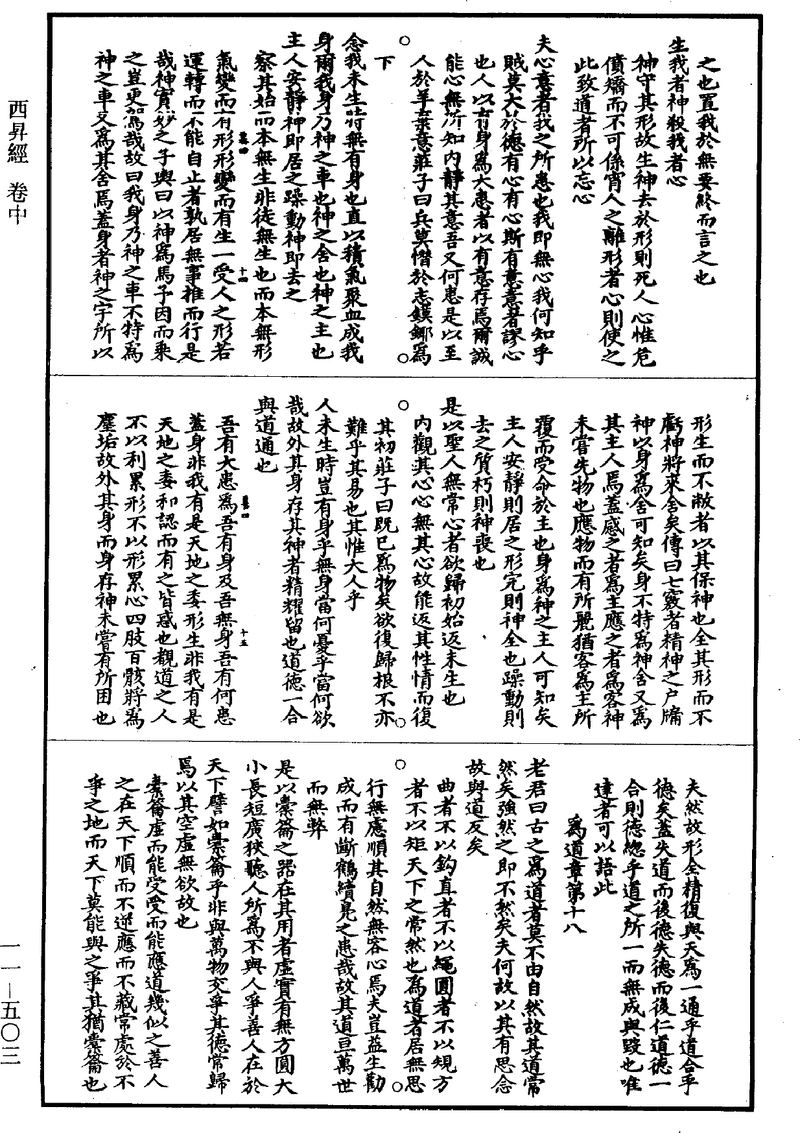 西昇經 卷中
之也置我於無要終而言之也
生我者神殺我者心
神守其形故生神去於形則死人心惟危
僨驕而不可係宵人之離形者心則使之
此致道者所以忘心
夫心意者我之所患也我即無心我何知乎
賊莫大於德有心有心斯有意意者謬心
也人以有身爲大患者以有意存焉爾誠
能心無所知内靜其意吾又何患是以至
人於羊棄意莊子曰兵莫憯於志鏌鋣爲
下
念我未生時無有身也直以積氣聚血成我
身爾我身乃神之車也神之舍也神之主也
主人安靜神即居之躁動神即去之
察其始而本無生非徒無生也而本無形
氣變而有形形變而有生一受人之形若
運轉而不能自止者孰居無事推而行是
哉神實妙之子輿曰以神爲馬予因而乘
之豈更駕哉故曰我身乃神之車不特爲
神之車又爲其舍焉蓋身者神之宇所以
形生而不敝者以其保神也全其形而不
虧神將來舍矣傳曰七竅者精神之户牖
神以身爲舍可知矣身不特爲神舍又爲
其主人焉蓋感之者爲主應之者爲客神
未嘗先物也應物而有所麗猶客爲主所
覆而受命於主也身爲神之主人可知矣
主人安靜則居之形完則神全也躁動則
去之質朽則神喪也
是以聖人無常心者欲歸初始返未生也
内觀其心心無其心故能返其性情而復
其初莊子曰既已爲物矣欲復歸根不亦
難乎其易也其惟大人乎
人未生時豈有身乎無身當何憂乎當何欲
哉故外其身存其神者精耀留也道德一合
與道通也
吾有大患爲吾有身及吾無身吾有何患
蓋身非我有是天地之委形生非我有是
天地之委和認而有之皆惑也觀道之人
不以利累形不以形累心四肢百骸將爲
塵垢故外其身而身存神未嘗有所困也
夫然故形全精復與天爲一通乎道合乎
德矣蓋失道而後德失德而後仁道德一
合則德緫乎道之所一而無成與毁也唯
達者可以語此
爲道章第十八
老君曰古之爲道者莫不由自然故其道常
然矣強然之即不然矣夫何故以其有思念
故與道反矣
曲者不以鈎直者不以繩圓者不以規方
者不以矩天下之常然也爲道者居無思
行無慮順其自然無容心焉夫豈益生勸
成而有斷鶴續鳧之患哉故其道亘萬世
而無弊
是以橐籥之器在其用者虛實有無方圓大
小長短廣狹聽人所爲不與人爭善人在於
天下譬如橐籥乎非與萬物交爭其德常歸
焉以其空虛無欲故也
橐籥虛而能受受而能應道幾似之善人
之在天下順而不逆應而不藏常處於不
爭之地而天下莫能與之爭其猶橐籥也
一一—五〇三